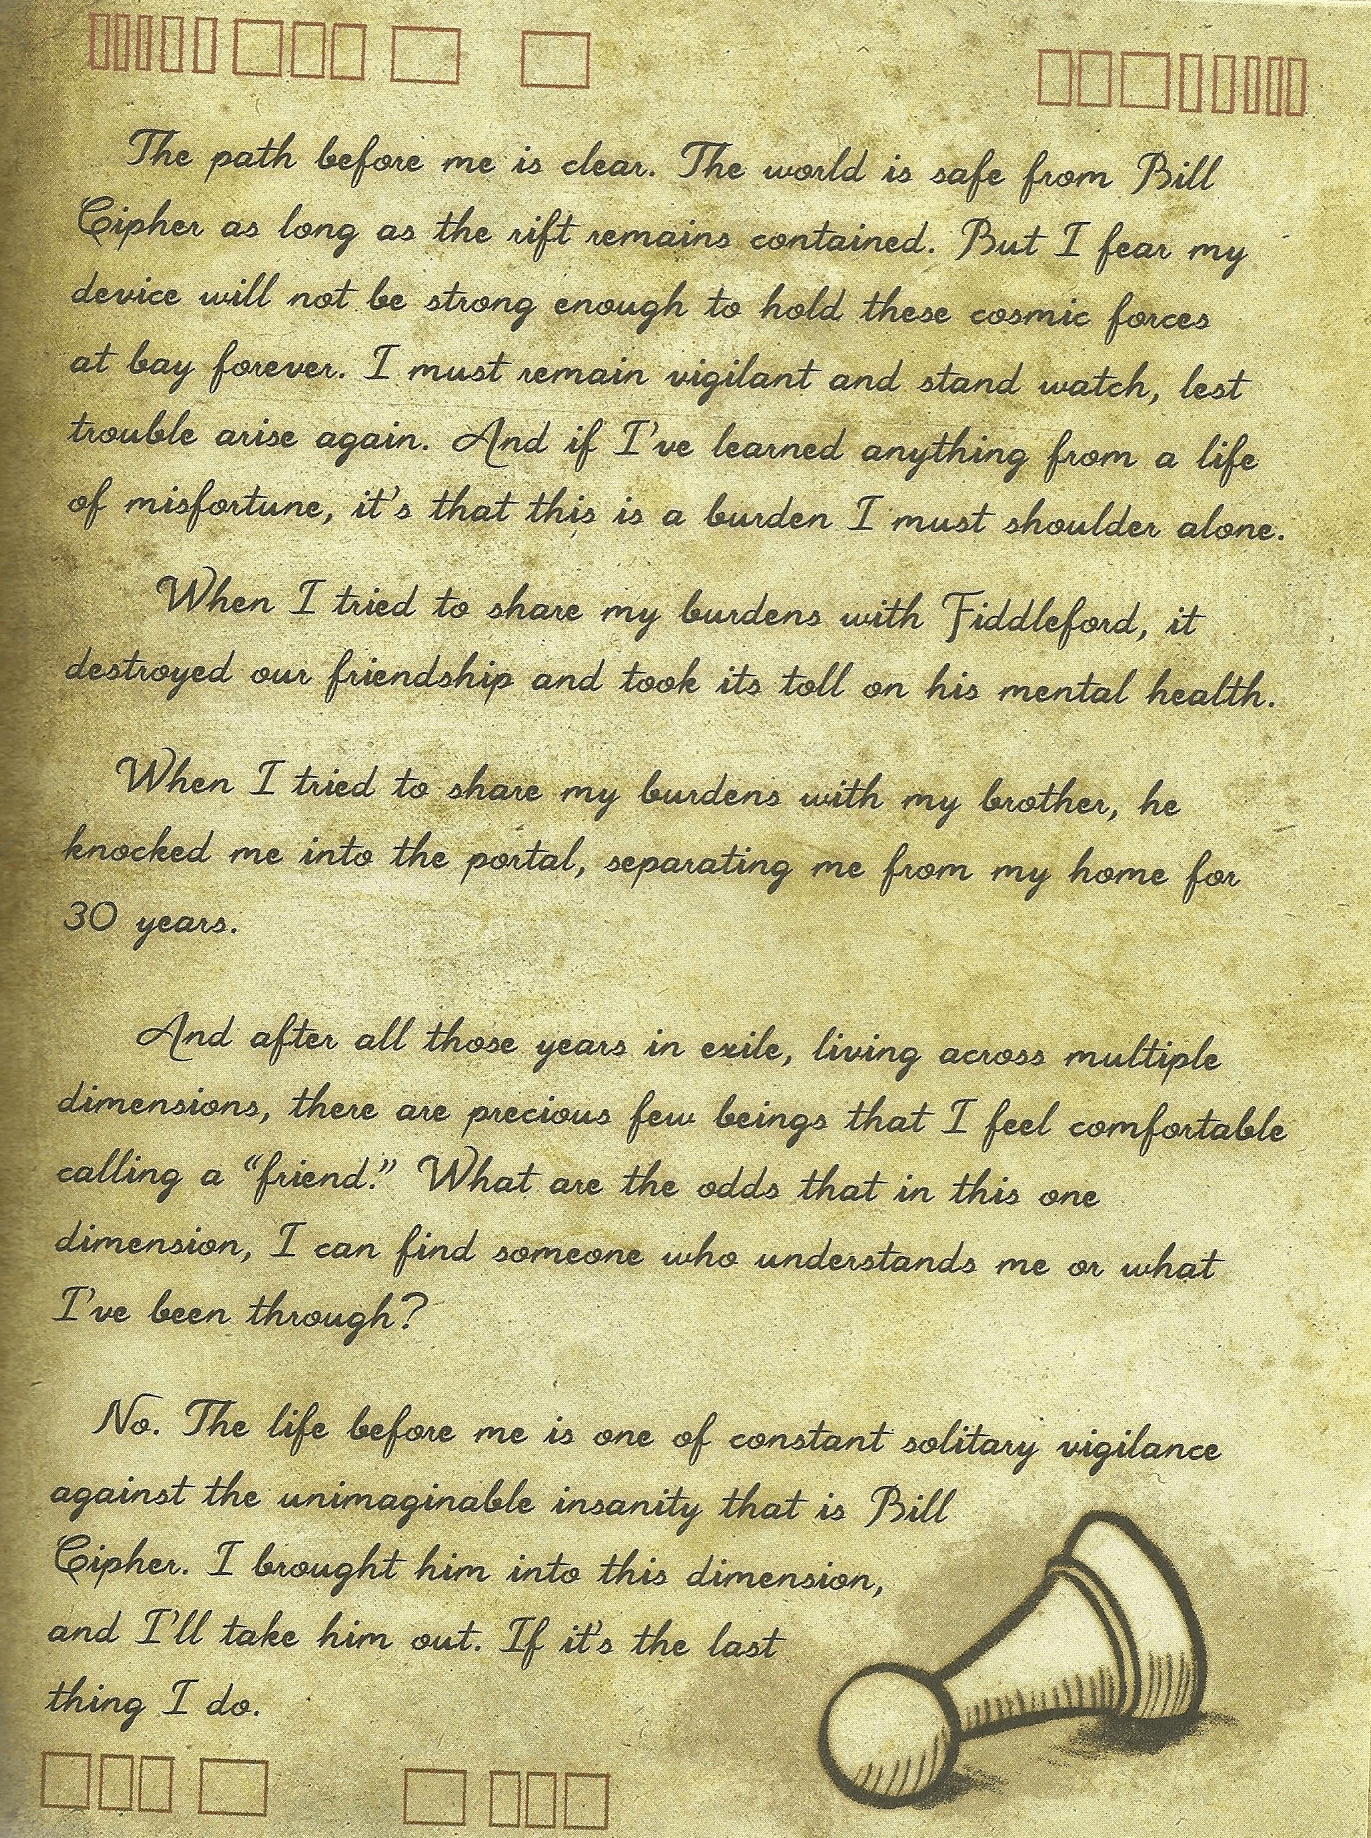 The path before me is clear. The world is safe from Bill
Cipher as long as the rift remains contained. But I fear my
device will not be strong enough to hold these cosmic forces
at bay forever. I must remain vigilant and stand watch, lest
trouble arise again. And if I've learned anything from a life
of misfortune, it's that this is a burden I must shoulder alone.
When I tried to share my burdens with Fiddleford, it
destroyed our friendship and took its toll on his mental health.
When I tried to share my burdens with my brother, he
knocked me into the portal, separating me from my home for
30 years.
And after all those years in exile, living across multiple
dimensions, there are precious few beings that I feel comfortable
calling a “friend.” What are the odds that in this one
dimension, I can find someone who understands me or what
I've been through?
No. The life before me is one of constant solitary vigilance
against the unimaginable insanity that is Bill
Cipher. I brought him into this dimension,
and I'll take him out. If it's the last
thing I do.